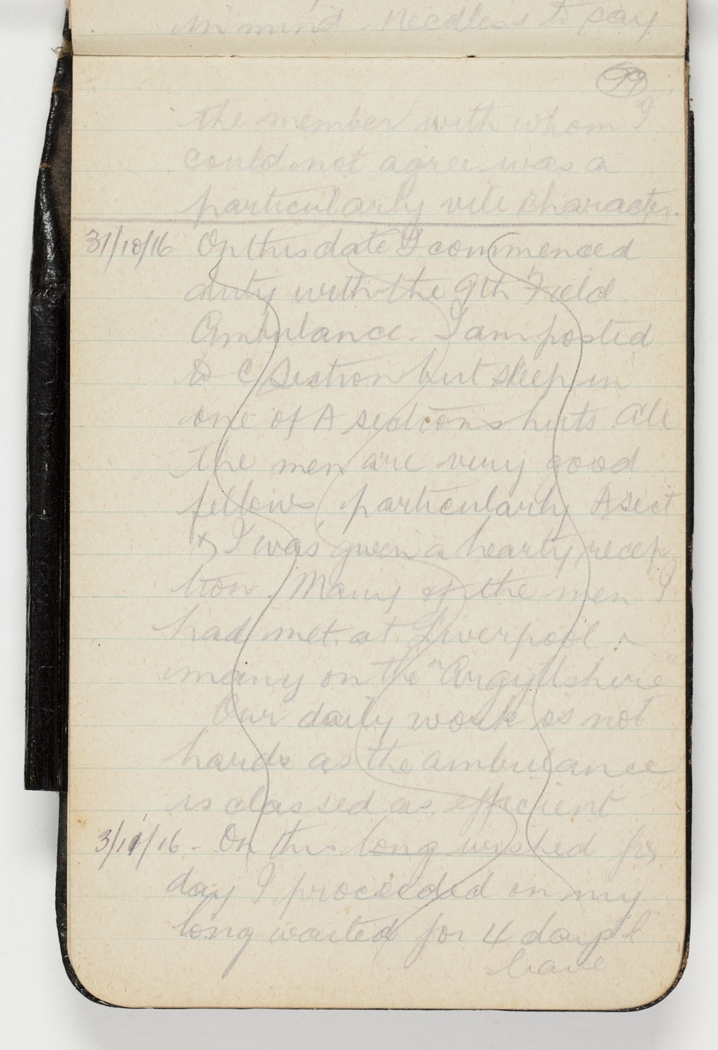 in mind. Needless to say
99
the member with whom I
could not agree was a
particularly vile character.
31/10/16 On this date I commenced
duty with the 9th Field
Ambulance. I am posted
to C Section but sleep in
one of A sections huts. All
the men are very good
fellows, particularly A sect
& I was given a hearty recep
tion. Many of the men I
had met at Liverpool &
many on the "Argyllshire
Our daily work is not
hard as the ambulance
is classed as efficient
3/11/16 - On this long wished for
day I proceeded on my
long waited for 4 days l
leave